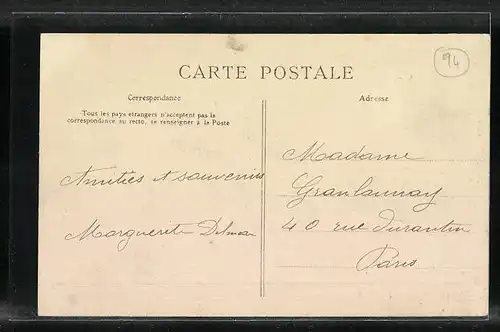 94
CARTE POSTALE
Correspondance
Adresse
Tous les pays étrangers n'acceptent pas la
correspondance au recto, se renseigner à la Poste
Amitiés et souvenirs
Marguerite
Madame
40 rue Durantin
Paris